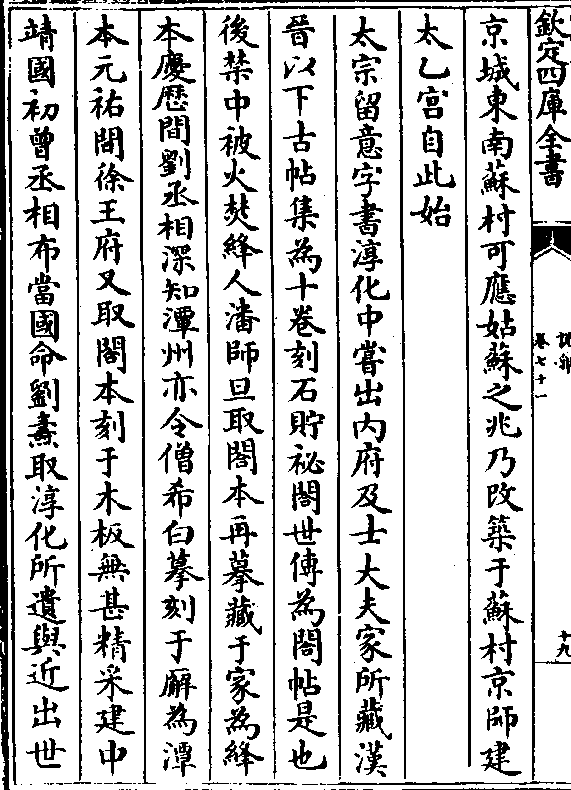 欽定四庫全書
說郛
卷七十一
十九
京城東南蘇村可應姑蘇之兆乃改築于蘇村京師建
太乙宮自此始
太宗留意字書淳化中嘗出內府及士大夫家所藏漢
晉以下古帖集為十卷刻石貯祕閣世傳為閣帖是也
後禁中被火焚絳人潘師旦取閣本再摹藏于家為絳
本慶歷間劉丞相沆知潭州亦令僧希白摹刻于廨為潭
本元祐間徐王府又取閣本刻于木板無甚精采建中
靖國初曾丞相布當國命劉燾取淳化所遺與近出世